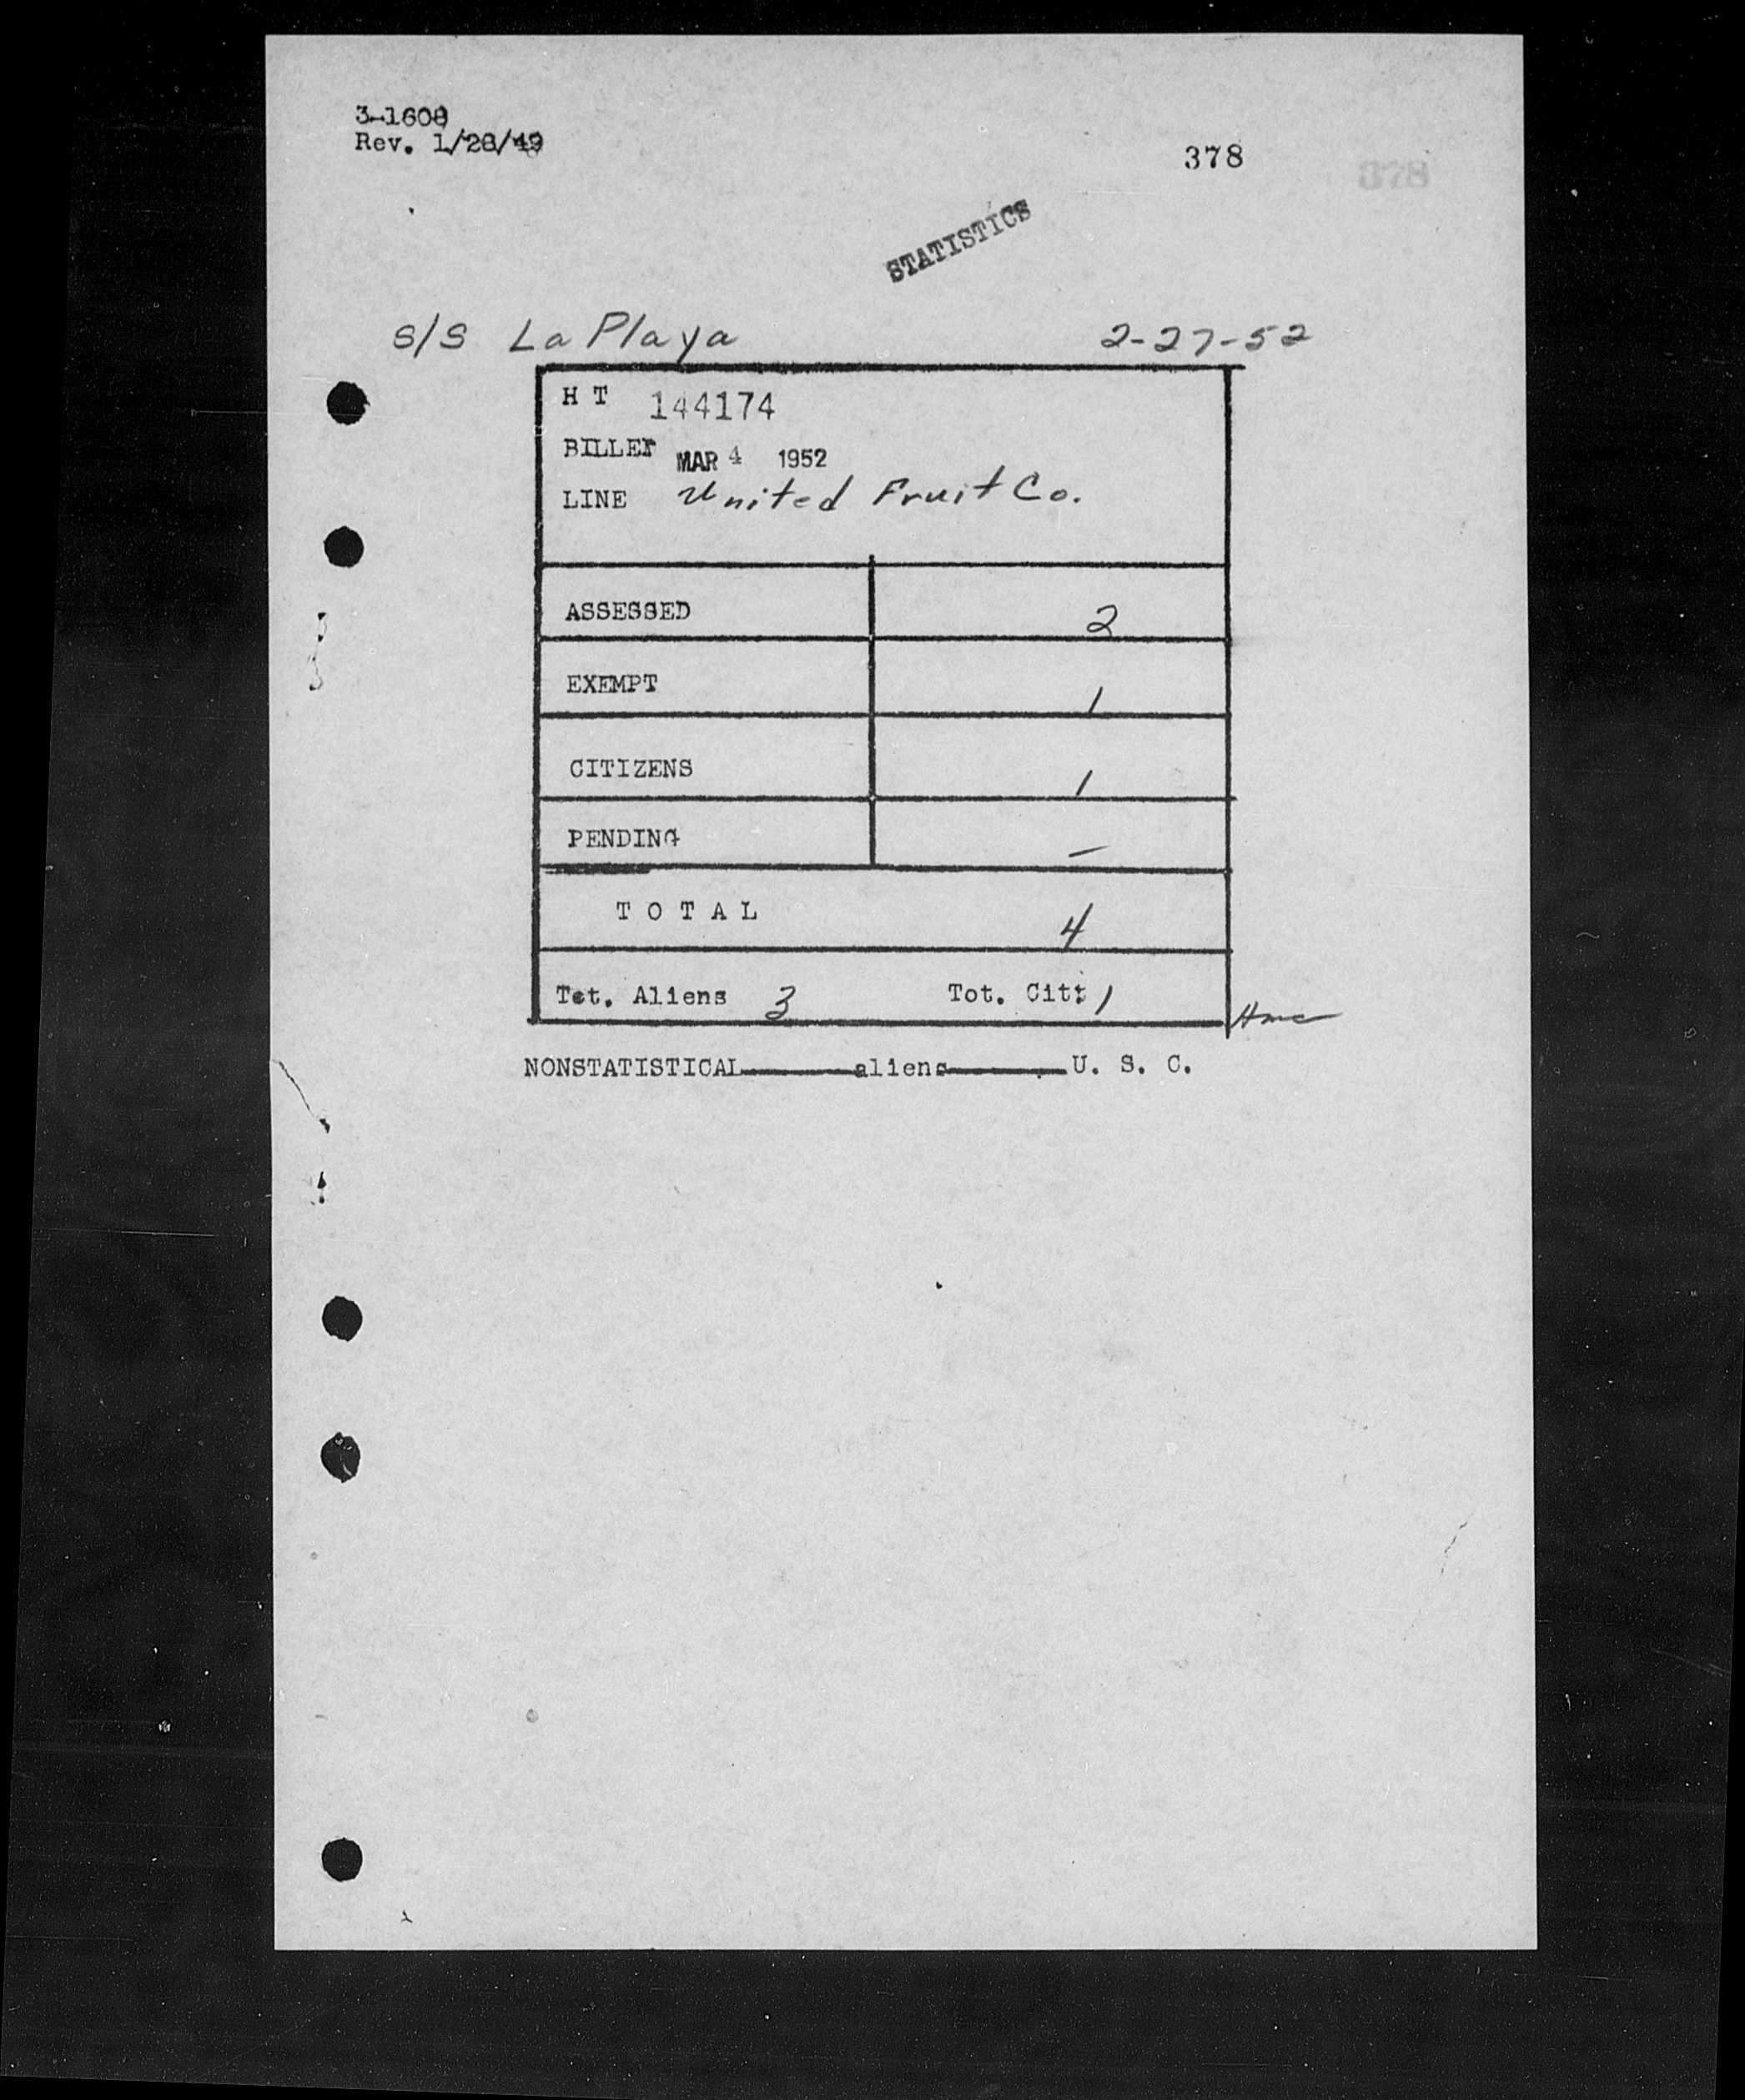 3-1608
Rev. 1/28/49
378
378
STATISTICS
S/S La Playa 2-27-52
H T 144174
BILLET MAR 4 1952
LINE United Fruit Co.
ASSESSED 2
EXEMPT 1
CITIZENS 1
PENDING —
T O T A L 4
Tot. Aliens 3 Tot. Cit: 1
NONSTATISTICAL aliens U. S. C.